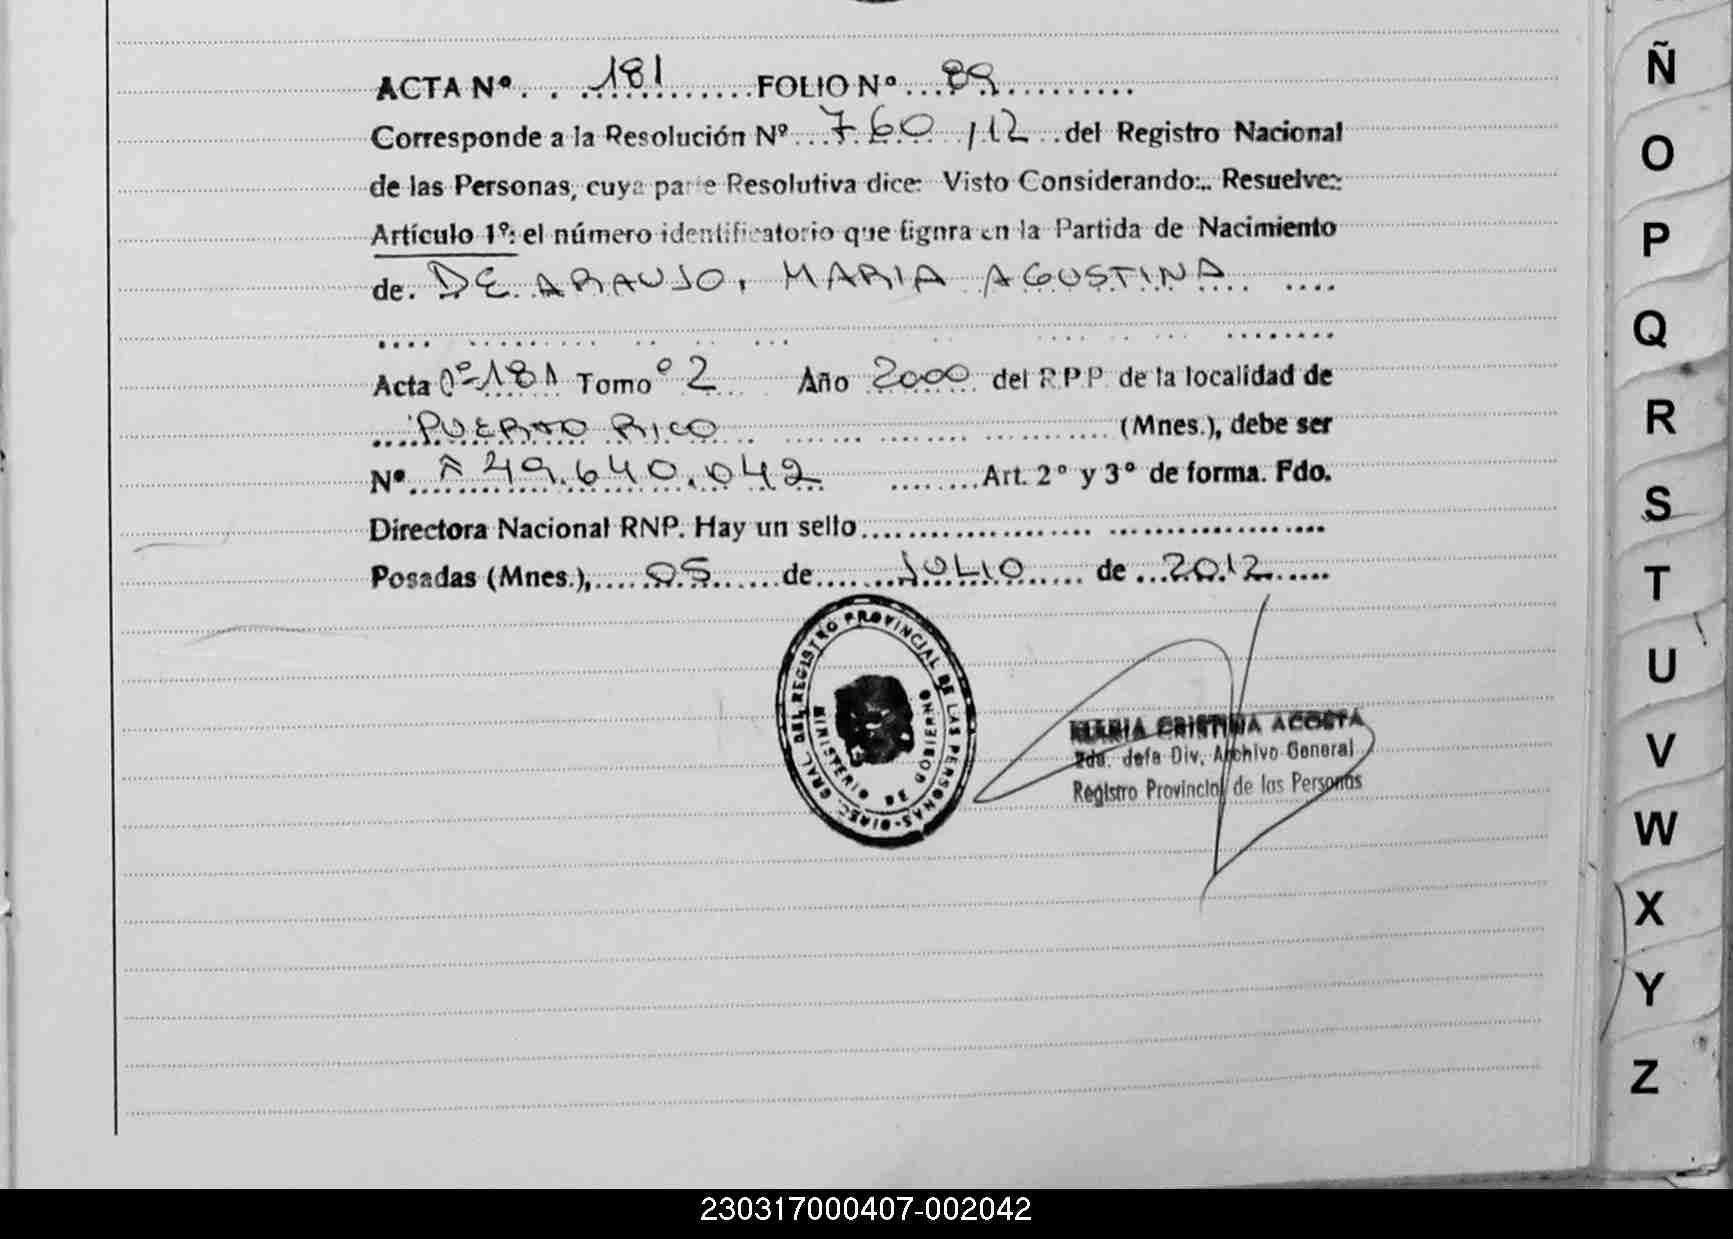 ACTA Nº. . .181............FOLIO Nº...89..........
Corresponde a la Resolución Nº...760./12..del Registro Nacional
de las Personas, cuya parte Resolutiva dice: Visto Considerando:.. Resuelve::
Artículo 1º: el número identificatorio que figura en la Partida de Nacimiento
de. DE ARAUJO, MARIA AGUSTINA
Acta nº 181 Tomo º 2 Año 2000 del R P P de la localidad de
PUERTO RICO (Mnes.), debe ser
Nº 49.640.042 ........Art. 2º y 3º de forma. Fdo.
Directora Nacional RNP. Hay un sello
Posadas (Mnes.),....05......de.......JULIO..... de ...2012......
DIREC. GRAL. DEL REGISTRO PROVINCIAL DE LAS PERSONAS
MINISTERIO DE GOBIERNO
MARIA CRISTINA ACOSTA
Jefa Div. Archivo General
Registro Provincial de las Personas
Ñ
O
P
Q
R
S
T
U
V
W
X
Y
Z
230317000407-002042